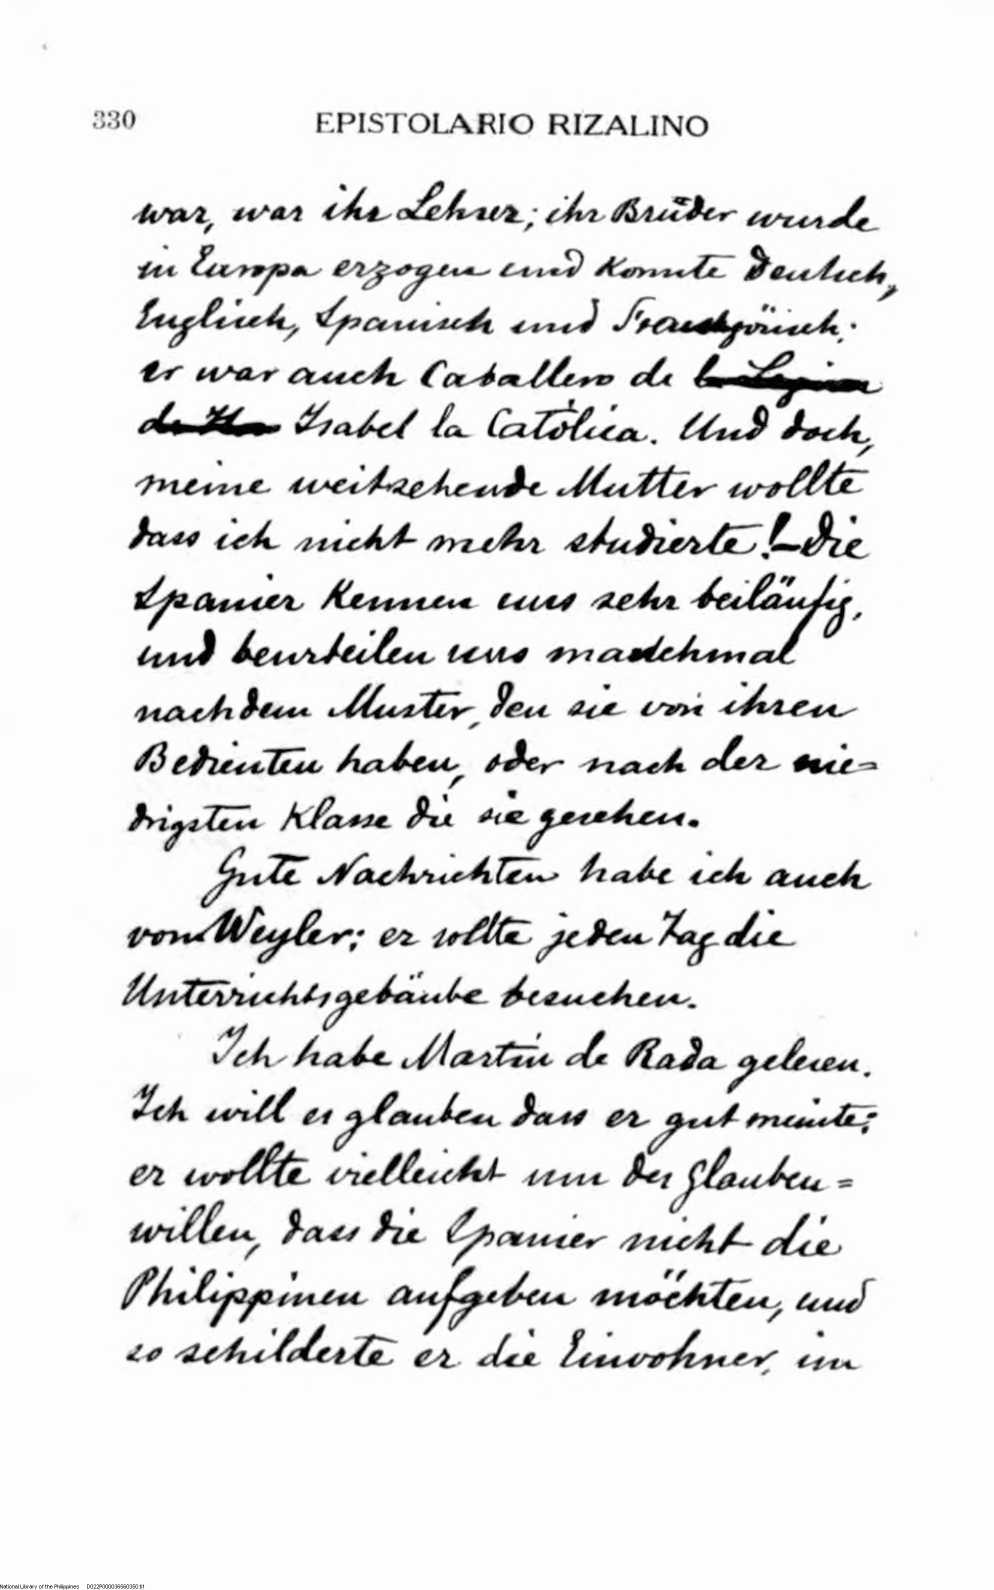 330 EPISTOLARIO RIZALINO
war, war ihr Lehrer; ihr Brüder wurde
in Europa erzogen und konnte Deutsch,
Englisch, Spanisch und Französisch;
er war auch Caballero de la Legion
de Isabel la Católica. Und doch,
meine weitsehende Mutter wollte
dass ich nicht mehr studierte! — Die
Spanier kennen uns sehr beiläufig,
und beurteilen uns manchmal
nach dem Muster, den sie von ihren
Bedienten haben, oder nach der nie=
drigsten Klasse die sie gesehen.
Gute Nachrichten habe ich auch
von Weyler; er sollte jeden Tag die
Unterrichtsgebäube besuchen.
Ich habe Martin de Rada gelesen.
Ich will es glauben dass er gut meinte;
er wollte vielleicht um des Glauben=
willen, dass die Spanier nicht die
Philippinen aufgeben möchten, und
so schilderte er die Einwohner, im
National Library of the Philippines